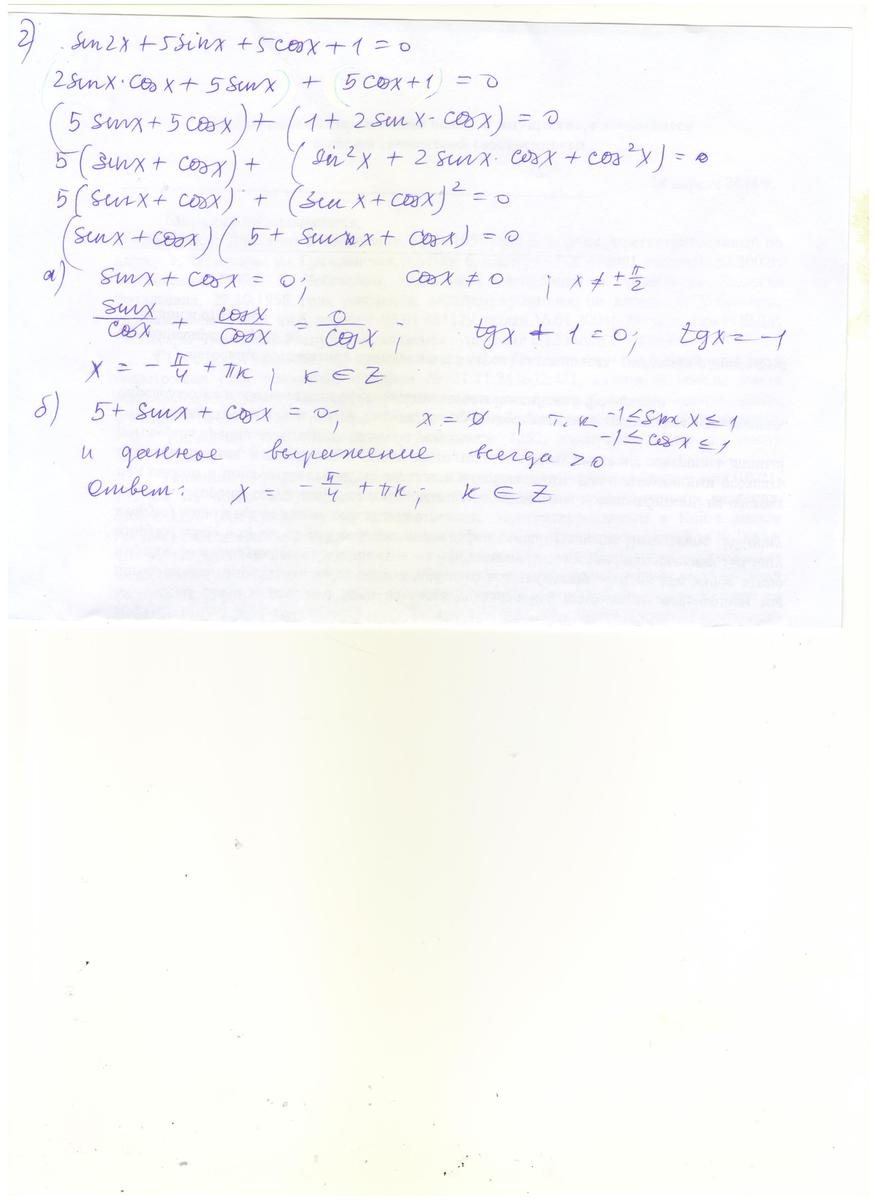 2) sin2x + 5sinx + 5cosx + 1 = 0
2sinx·cosx + 5sinx + (5cosx+1) = 0
(5 sinx + 5cosx) + (1 + 2sinx·cosx) = 0
5(sinx + cosx) + (sin²x + 2sinx·cosx + cos²x) = 0
5(sinx + cosx) + (sinx + cosx)² = 0
(sinx + cosx)(5 + sinx + cosx) = 0
а) sinx + cosx = 0; cosx ≠ 0 ; x ≠ ± π/2
sinx/cosx + cosx/cosx = 0/cosx; tgx + 1 = 0; tgx = -1
x = - π/4 + πк; к ∈ Z
б) 5 + sinx + cosx = 0; x = ∅, т.к -1 ≤ sin x ≤ 1
-1 ≤ cosx ≤ 1
и данное выражение всегда > 0
Ответ: x = - π/4 + πк; к ∈ Z